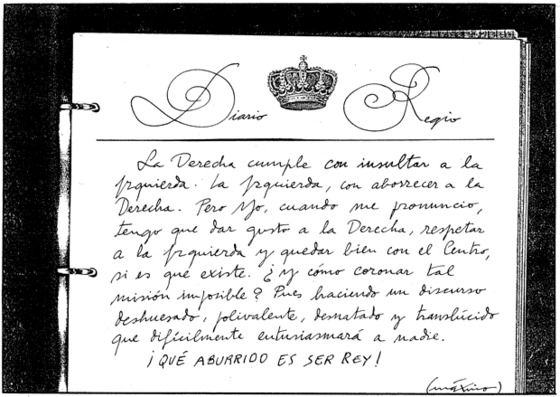 Diario Regio
La Derecha cumple con insultar a la
Izquierda. La Izquierda, con aborrecer a la
Derecha. Pero Yo, cuando me pronuncio,
tengo que dar gusto a la Derecha, respetar
a la Izquierda y quedar bien con el Centro,
si es que existe. ¿Y cómo coronar tal
misión imposible? Pues haciendo un discurso
deshuesado, polivalente, desnatado y translúcido
que difícilmente entusiasmará a nadie.
¡QUÉ ABURRIDO ES SER REY!
(máximo)